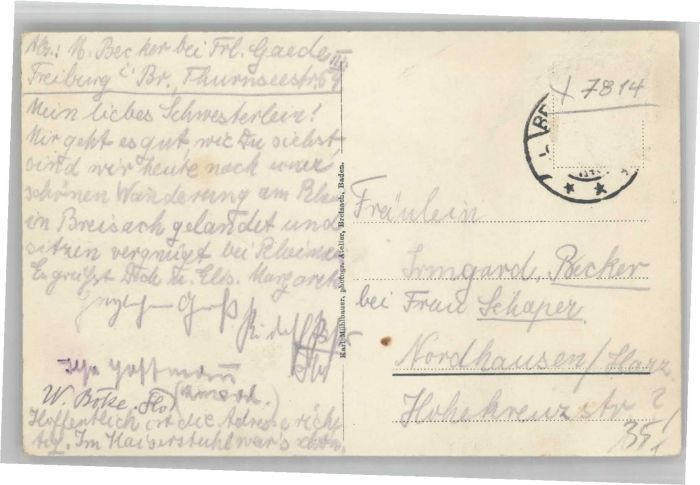 Abs.: M. Becker bei Frl. Gaede
Freiburg i. Br., Thurnseestr. 51
Mein liebes Schwesterlein!
Mir geht es gut, wie Du siehst
sind wir heute nach einer
schönen Wanderung am Rhein
in Breisach gelandet und
sitzen vergnügt bei Rheinwein
Es grüßt Dich u. Els. Margarete
Gruß
Hoffmann
W. Böke.
Hoffentlich ist die Adresse rich-
tig. Im Kaiserstuhl war's schön.
Karl Mühlbauer, photogr. Atelier, Breisach, Baden.
+ 7814
Fräulein
Irmgard Becker
bei Frau Schaper
Nordhausen/Harz
Hohekreuzstr ?
35,-